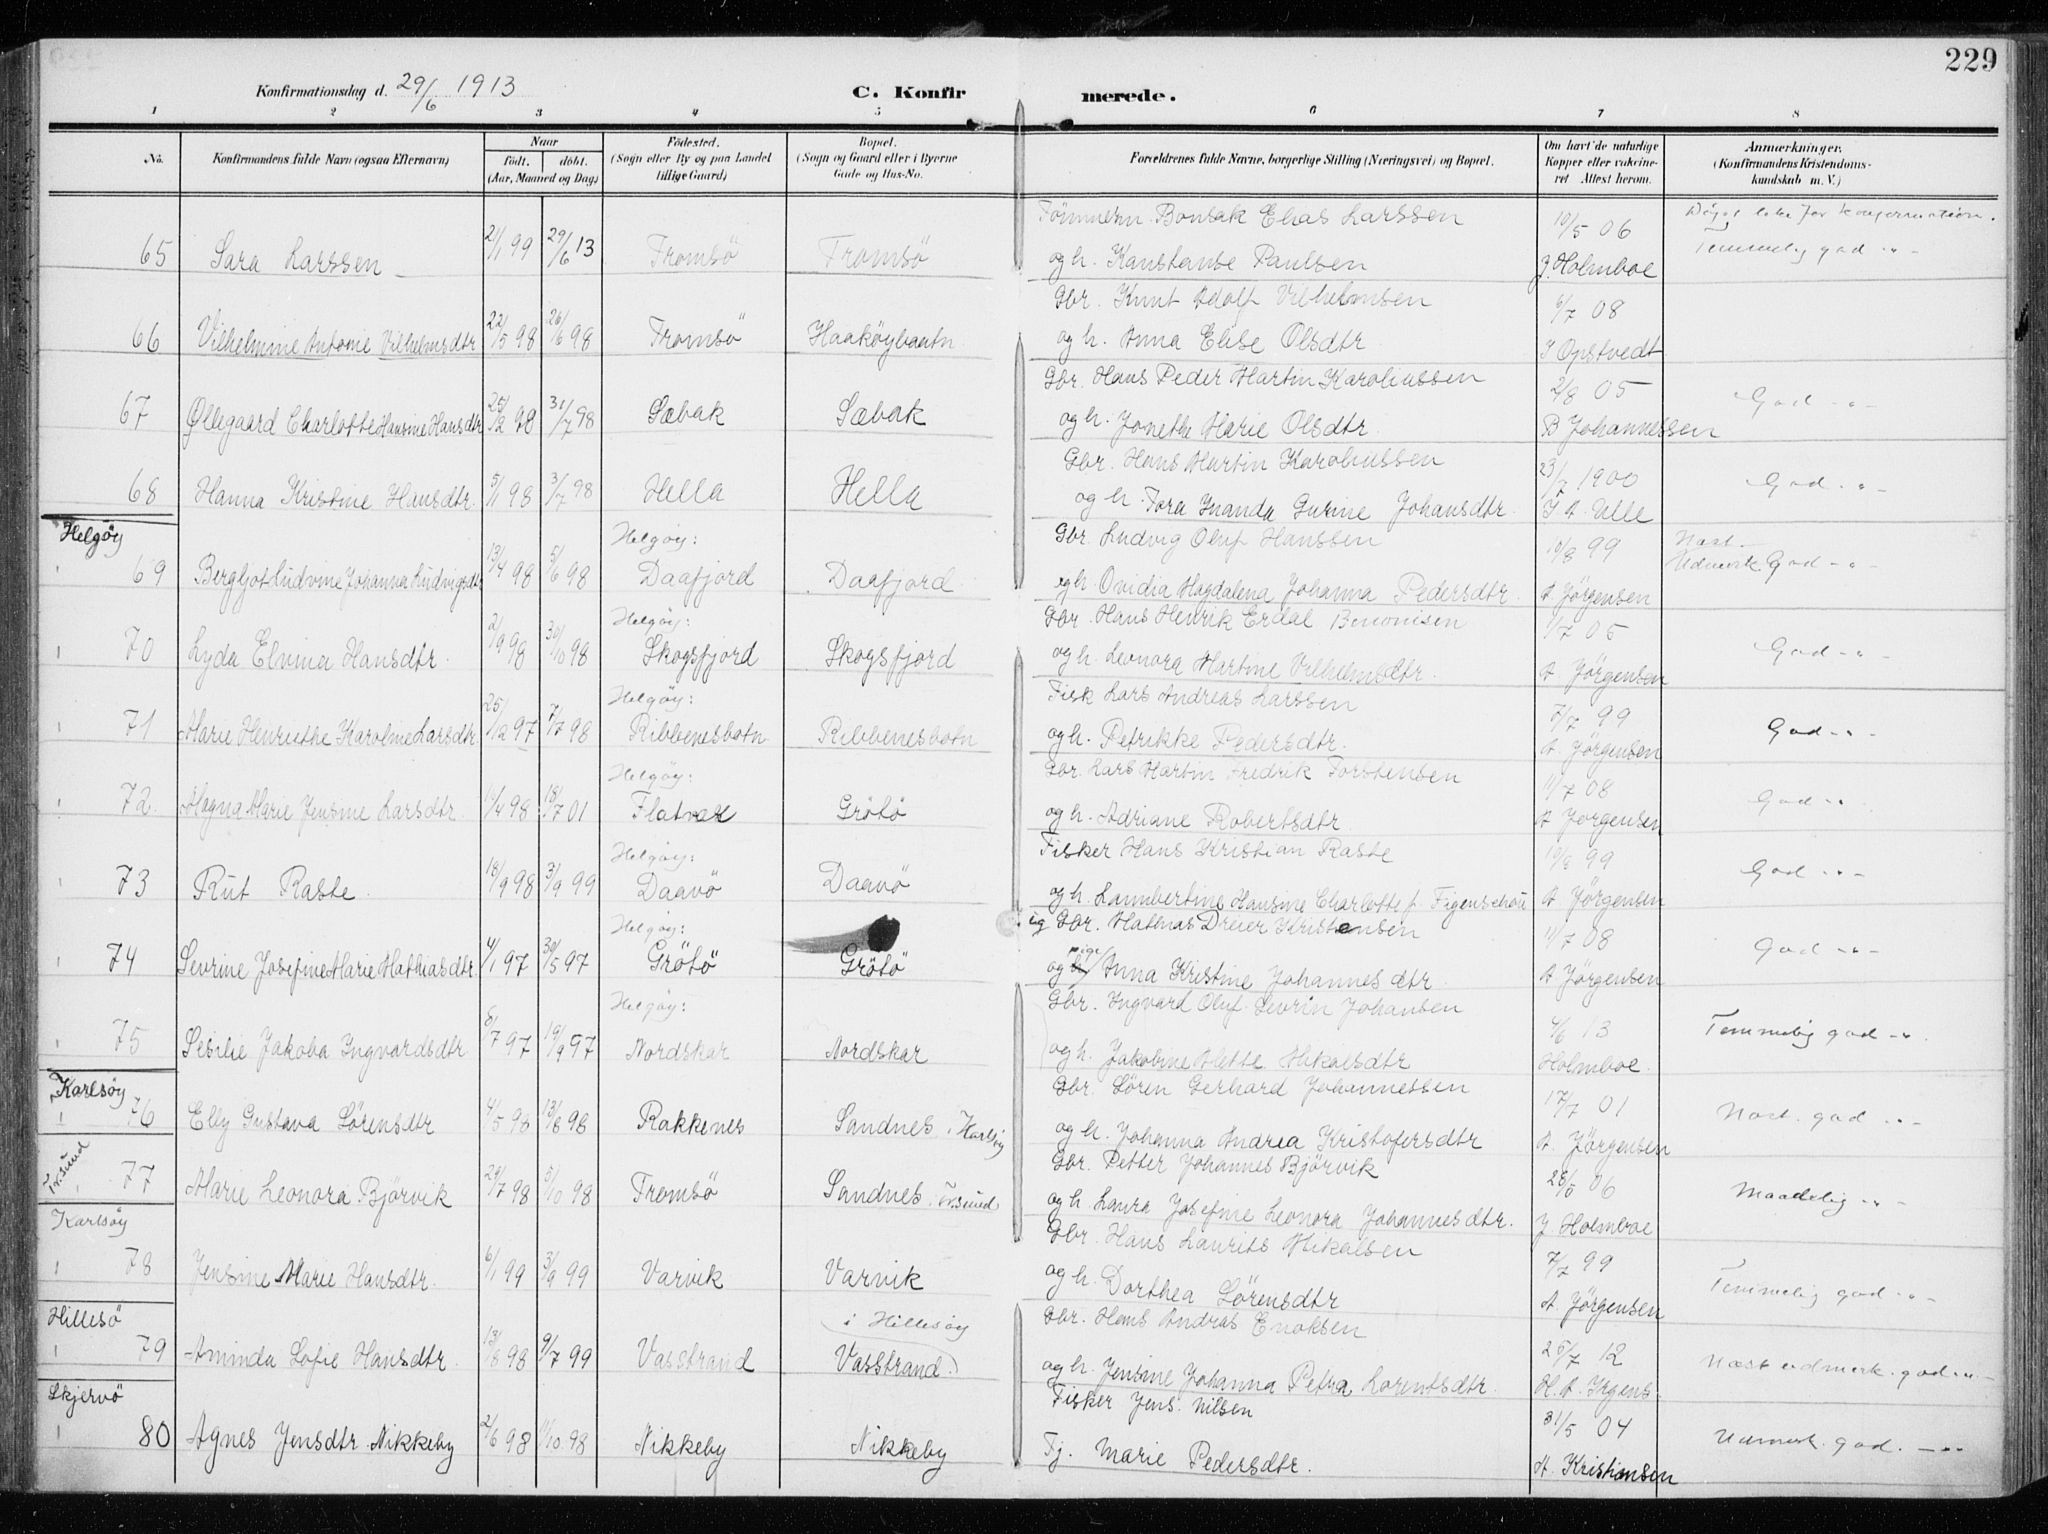 229
Konfirmationsdag d. 29/6 1913
C. Konfirmerede.
1 2 3 4 5 6 7 8
No. Konfirmandens fulde Navn (ogsaa Efternavn) Naar født. døbt. (Aar, Maaned og Dag) Fødested. (Sogn eller By og paa Landet tillige Gaard) Bopæl. (Sogn og Gaard eller i Byerne Gade og Hus-No. Forældrenes fulde Navne, borgerlige Stilling (Næringsvei) og Bopæl. Om havt de naturlige Kopper eller vakcineret Attest herom. Anmærkninger. (Konfirmandens Kristendomskundskab m. V.)
Tømmerm. Bonsak Elias Larssen 10/5 06
65 Sara Larssen 2/1 99 29/6 13 Tromsö Tromsö og h. Kanstanse Paulsen J. Holmboe Temmelig god -"-
Gbr. Knut Adolf Vilhelmsen 6/7 08
66 Vilhelmine Antonie Vilhelmsdtr 22/5 98 26/6 98 Tromsö Haaköybaatn og h. Anna Elise Olsdtr I Opstvedt
Gbr. Hans Peder Martin Karoliussen 2/8 05
67 Øllegaard Charlotte Hansine Hansdtr 25/2 98 31/7 98 Sæbak Sæbak og h. Jonethe Marie Olsdtr. B Johannessen God -"-
Gbr. Hans Martin Karoliussen 23/7 1900
68 Hanna Kristine Hansdtr. 5/1 98 3/7 98 Hella Hella og h. Tora Inanda Gurine Johansdtr. I A. Ulle God -"-
Helgöy Helgöy: Gbr. Ludvig Oluf Hanssen 10/8 99 Næst
" 69 Bergljot Ludvine Johanna Ludvigsdtr 13/4 98 5/6 98 Daafjord Daafjord og h. Ovidia Magdalena Johanna Pedersdtr. A Jørgensen Udmerk. God -"-
Helgöy: Gbr. Hans Henrik Erdal Benonisen 1/7 05
" 70 Lyda Elvina Hansdtr. 2/9 98 30/10 98 Skogsfjord Skogsfjord og h. Leonora Martine Vilhelmsdtr. A Jørgensen God -"-
Helgöy: Fisk Lars Andreas Larssen 5/7 99
" 71 Marie Henriethe Karoline Larsdtr. 25/12 97 7/7 98 Ribbenesbotn Ribbenesbotn og h. Petrikke Pedersdtr. A. Jørgensen God -"-
Helgöy: Gbr. Lars Martin Fredrik Torstensen 11/7 08
" 72. Magna Marie Jensine Larsdtr. 14/4 98 18/7 01 Flatvær Grötö og h. Adriane Robertsdtr A Jørgensen God -"-
Helgöy: Fisker Hans Kristian Raste 10/8 99
" 73 Rut Raste. 18/9 98 3/9 99 Daavö Daavö og h. Lambertine Hansine Charlotte f. Figenschou A Jørgensen God -"-
Helgöy: ug Gbr. Mathias Dreier Kristensen 11/7 08
" 74 Sevrine Josefine Marie Mathiasdtr. 4/1 97 30/5 97 Grötö Grötö og pige Anna Kristine Johannesdtr. A Jørgensen God -"-
Helgöy: Gbr. Ingvard Oluf Sevrin Johansen 4/6 13
" 75 Sesilie Jakoba Ingvardsdtr 8/7 97 19/9 97 Nordskar Nordskar og h. Jakobine Mette Mikalsdtr Holmboe. Temmelig god -"-
Karlsöy Gbr. Sören Gerhard Johannessen 17/7 01
" 76 Elly Gustava Sörensdtr 4/5 98 13/8 98 Rakkenes Sandnes i Karlsöy og h. Johanna Andrea Kristofersdtr A. Jørgensen Næst. god -"-
Tr.sund Gbr. Petter Johannes Björvik 28/5 06
" 77 Marie Leonora Björvik 29/7 98 5/10 98 Tromsö Sandnes, Tr.sund og h Laura Josefine Leonora Johannesdtr. J Holmboe Maadelig -"-
Karlsöy Gbr. Hans Laurits Mikalsen 7/7 99
" 78 Jensine Marie Hansdtr. 6/1 99 3/9 99 Varvik Varvik og h. Dorthea Sörensdtr A. Jørgensen Temmelig god -"-
Hillesö i Hillesöy Gbr. Hans Andras Enoksen 25/7 12
" 79 Aminda Sofie Hansdtr. 13/8 98 9/7 99 Vasstrand Vasstrand. og h. Jensine Johanna Petra Lorentsdtr. H. A. Irgens. Næst udmerk. god -"-
Skjervö Fisker Jens Nilsen 31/5 04
" 80 Agnes Jensdtr. Nikkeby 2/6 98 11/10 98 Nikkeby Nikkeby Tj. Marie Pedersdtr. A. Kristiansen Udmerk. god. -"-